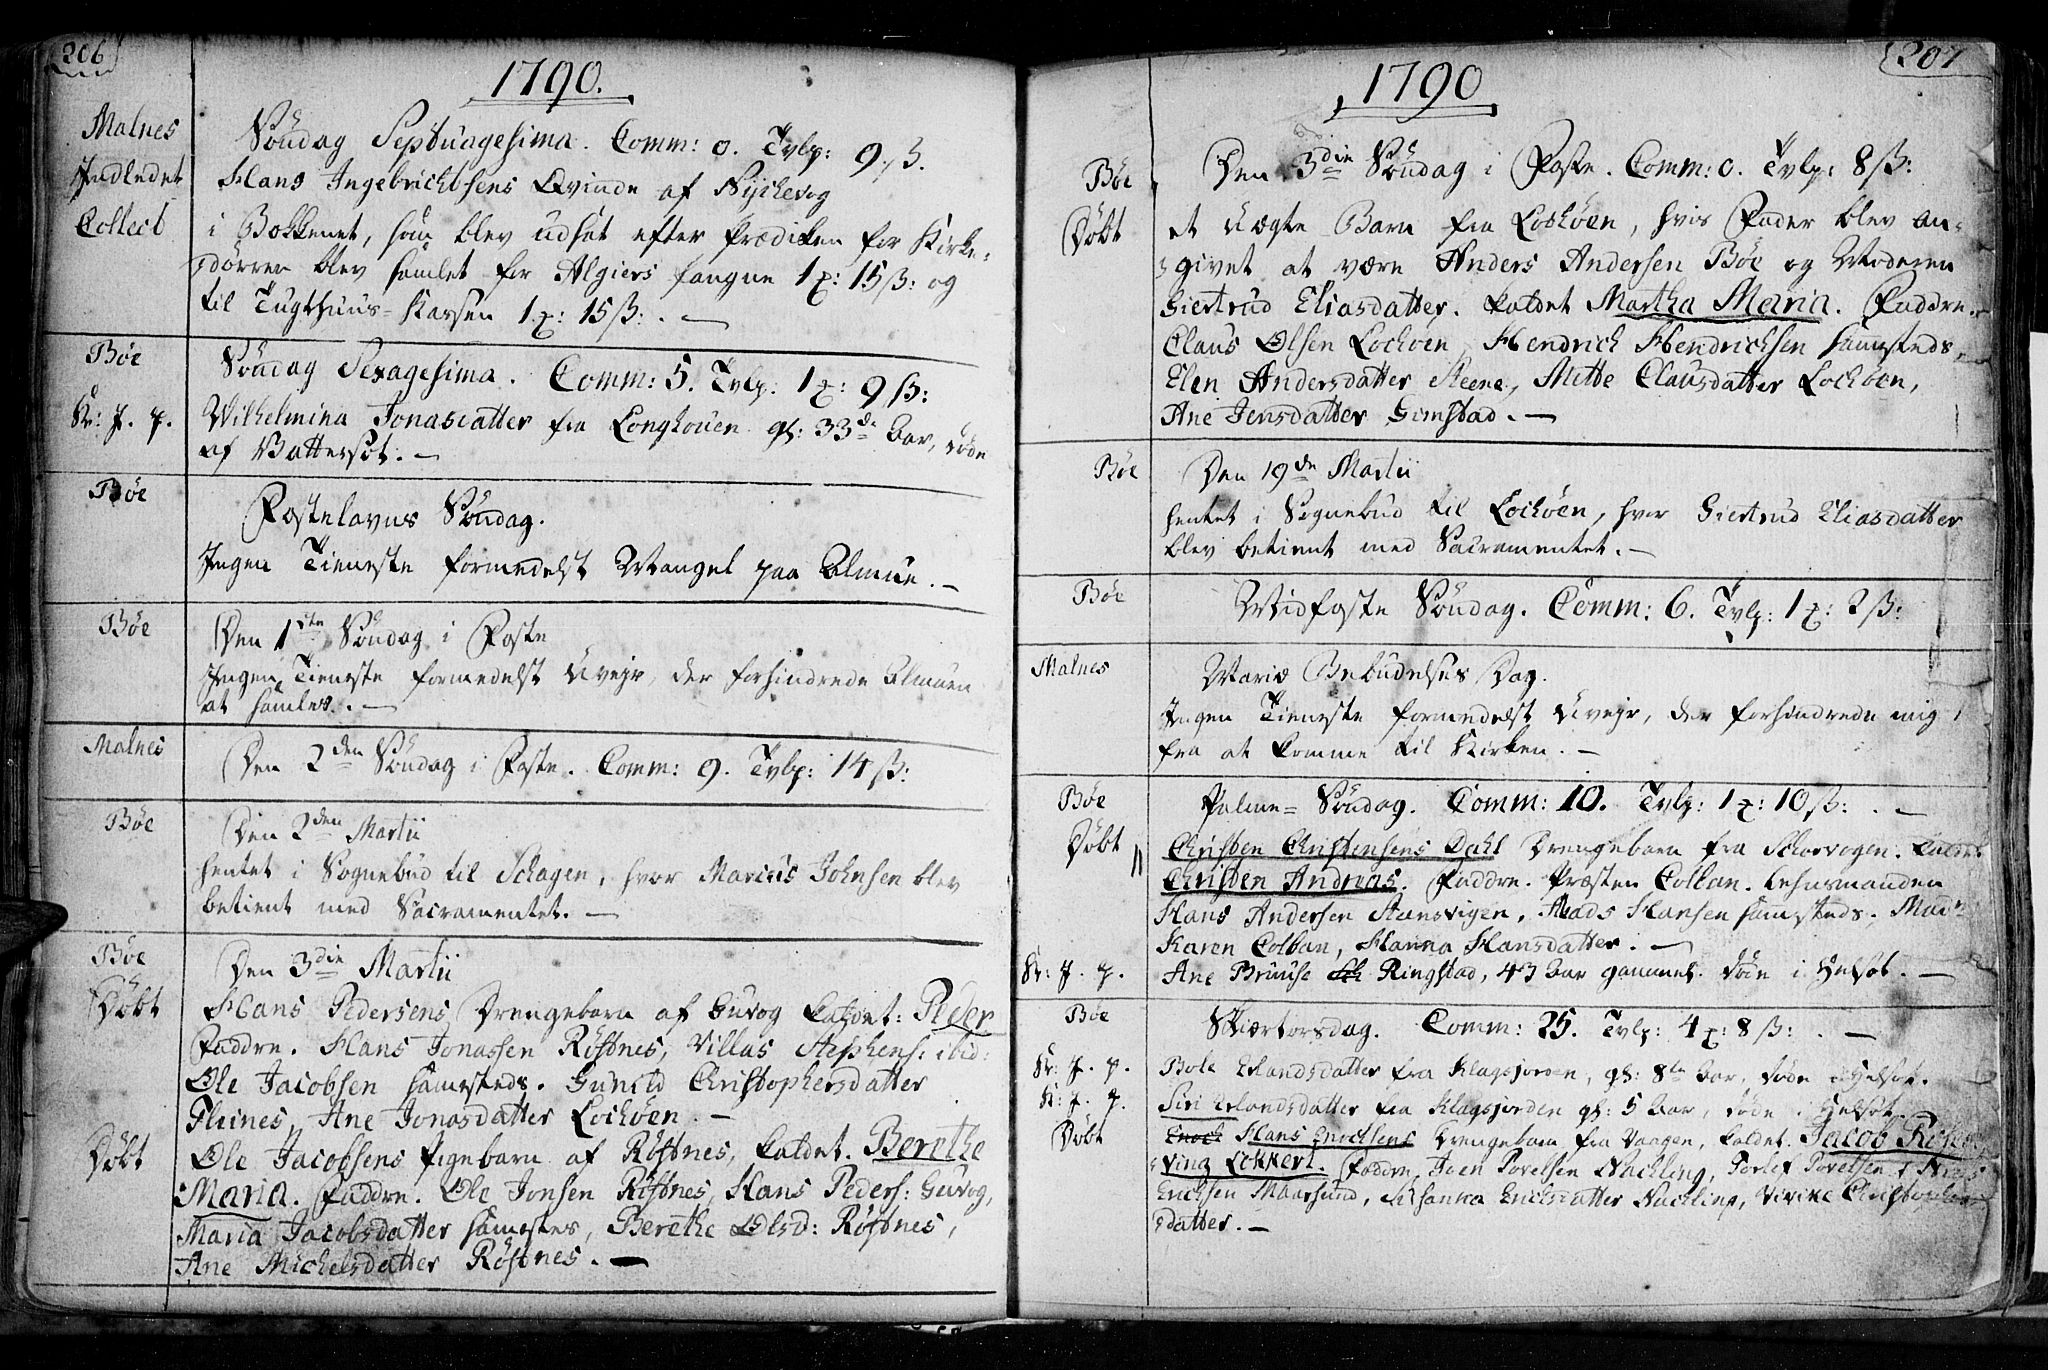 206
1790.
Malnes
Indledet
Collect
Søndag Septuagesima. Comm: 0. Tvlp: 9 ß.
Hans Ingebrichtsens Qvinde af Nyckevog
i Bekkenet, som blev udsat efter Prædiken for Kirke-
dørren blev samlet for Algiers fangne 1 ꝶ: 15 ß: og
til Tugthuus-Kassen 1 ꝶ: 15 ß: . —
Bøe
Kr: J. p.
Søndag Sexagesima. Comm: 5. Tvlp: 1 ꝶ: 9 ß:
Wilhelmina Jonasdatter fra gl: 33 Aar, døde
af
Bøe
Fastelavns Søndag.
Ingen Tieneste formedelst Mangel paa Almue. —
Bøe
Den 1ste Søndag i Faste
Ingen Tieneste formedelst Uvejr, der forhindrede Almuen
at samles. . —
Malnes
Den 2den Søndag i Faste. Comm: 9. Tvlp: 14 ß:
Bøe
Den 2den Martii
hentet i Sognebud til Schagen, hvor Marcus Johnsen blev
betient med Sacramentet. —
Bøe
Døbt
Den 3die Martii
Hans Pedersens Drengebarn af Guvog kaldet: Peder
Faddre. Hans Jonassen Røstnes, Villas Stephens: ibid:
Ole Jacobsen sammesteds. Gunild Christophersdatter
Fleines, Ane Jonasdatter Lochøen. —
Døbt
Ole Jacobsens Pigebarn af Røstnes, kaldet. Berethe
Maria. Faddre. Ole Jonsen Røstnes, Hans Peders: Guvog,
Maria Jacobsdatter sammesteds, Berethe Olsd: Røstnes,
Ane Michelsdatter Røstnes. —
207
1790
Bøe
Døbt
Den 3die Søndag i Faste. Comm: 0. Tvlp: 8 ß:
et uægte Barn fra Lochøen, hvis Fader blev an-
givet at være Anders Andersen Bøe og Moderen
Giertrud Eliasdatter. kaldet Martha Maria. Faddre.
Claus Olsen Lochøen, Hendrich Hendrichsen sammesteds,
Elen Andersdatter Steene, Mette Clausdatter Lochøen,
Ane Jensdatter Gimstad. —
Bøe
Den 19de Martii
hentet i Sognebud til Lochøen, hvor Giertrud Eliasdatter
blev betient med Sacramentet. —
Bøe
Midfaste Søndag. Comm: 6. Tvlp: 1 ꝶ: 2 ß:
Malnes
Mariæ Bebudelses Dag.
Ingen Tieneste formedelst Uvejr, der forhindrede mig
fra at komme til Kirken. —
Bøe
Døbt
Palme-Søndag. Comm: 10. Tvlp: 1 ꝶ: 10 ß: . —
Christen Christensens Dahl Drengebarn fra Skorvogen. kaldet
Christen Andreas. Faddre. Præsten Colban. Lehnsmanden
Hans Andersen Steensvigen, Mads Hansen sammesteds. Mad:
Karen Colban, Hanna Hansdatter. —
Kr: J. p.
Ane Bruuse Ringstad, 43 Aar gammel. døde i Helsot. —
Bøe
Skiærtorsdag. Comm: 25. Tvlp: 4 ꝶ: 8 ß: . —
Kr: J. p.
Bole Erlandsdatter fra Klagsjorden, gl: 8 Aar, døde i Helsot.
K: J. p.
Siri Erlandsdatter fra Klagsjorden gl: 5 Aar, døde i Helsot.
Døbt
Enoch Hans Enochsens Drengebarn fra Vaagen, kaldet. Jacob
ving Lokkert. Faddre, Joen Torelsen Nachling, Torlef Torelsen,
Erichsen Maarsund, Susanna Erichsdatter Nachling, Virike Christopher
datter. —